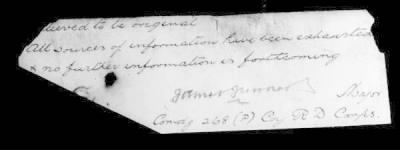 lieved to be original
All sources of information have been exhausted
& no further information is forthcoming
James
Major
Comdg 268 (P) Coy R D Corps.